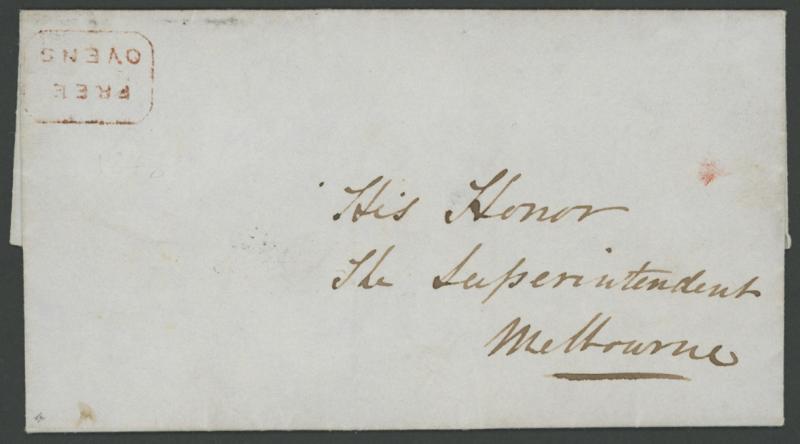 FREE
OVENS
His Honor
The Superintendent
Melbourne